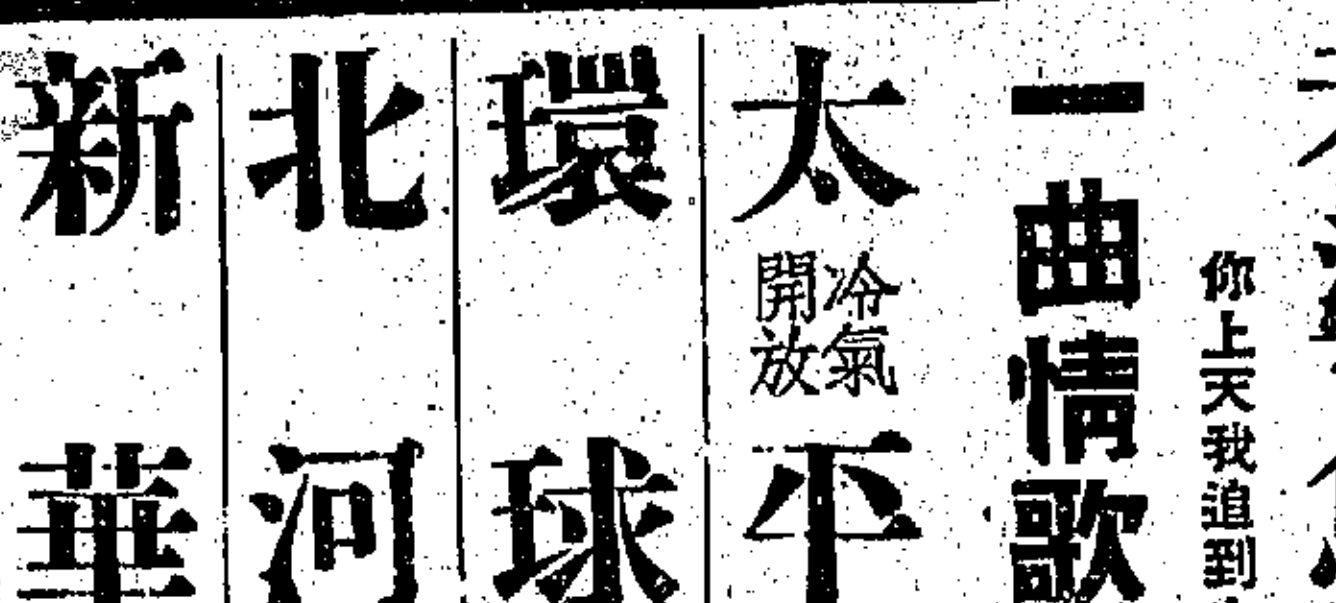 你上天我追到
一曲情歌
太平
冷氣
開放
環球
北河
新華